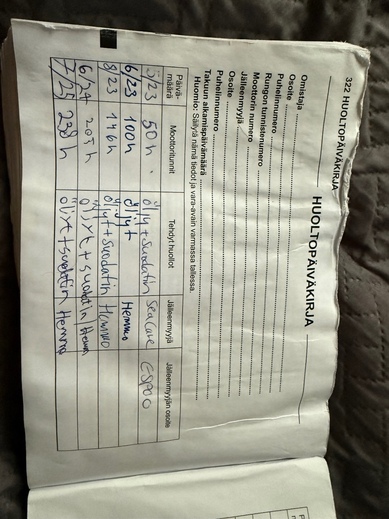 322 HUOLTOPÄIVÄKIRJA
HUOLTOPÄIVÄKIRJA
Omistaja
Osoite
Puhelinnumero
Rungon tunnistenumero
Moottorin numero
Jälleenmyyjä
Osoite
Puhelinnumero
Takuun alkamispäivämäärä
Huomio: Säilytä nämä tiedot ja vara-avain varmassa tallessa.
Päivä-määrä Moottoritunnit Tehdyt huollot Jälleenmyyjä Jälleenmyyjän osoite
5/23 50 h. öljyt+suodatin SeaCare ESPOO
6/23 100h öljyt Hemmo
8/23 140h öljyt+suodatin Hemmo
6/24 205h öljyt+suodatin
7/25 238h öljyt+suodattin Hemmo